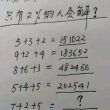 只有2%的人会解?
5+3+2=151022
9+2+4=183652
8+6+3=482466
5+4+5=202541
7+2+5=?